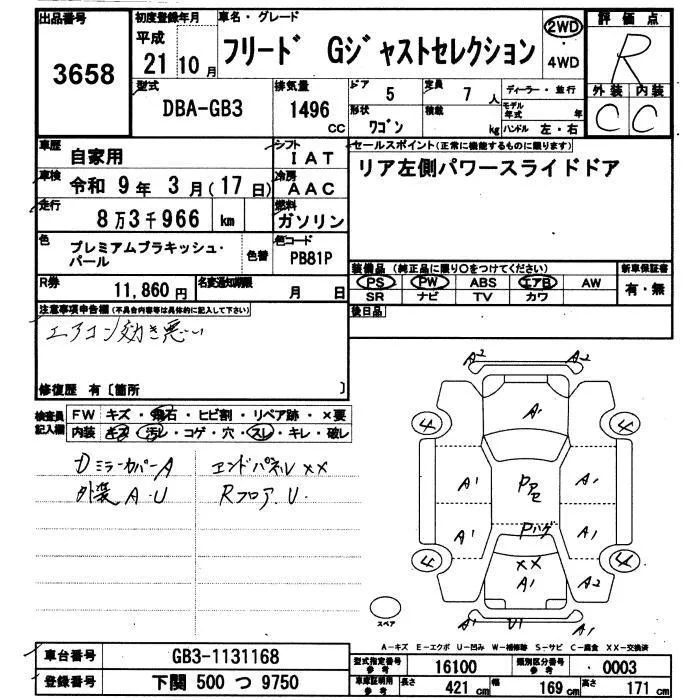 出品番号 3658
初度登録年月 平成 21年 10月
車名・グレード フリード Gジャストセレクション
2WD ・ 4WD
評価点 R
外装 C 内装 C
型式 DBA-GB3
排気量 1496 CC
ドア 5
定員 7 人
形状 ワゴン
積載 kg
ディーラー・並行
モデル年式 年
ハンドル 左・右
車歴 自家用
シフト IAT
車検 令和 9年 3月(17日)
冷房 AAC
走行 8万3千966 km
燃料 ガソリン
色 プレミアムブラキッシュ・パール
色替
色コード PB81P
R券 11,860円
名変通知期限 月 日
セールスポイント(正常に機能するものに限ります)
リア左側パワースライドドア
装備品(純正品に限り○をつけてください)
PS PW ABS エアB AW
SR ナビ TV カワ
新車保証書 有・無
後日品
注意事項申告欄(不具合内容等は具体的に記入して下さい)
エアコン効き悪い
修復歴 有〔箇所 〕
検査員記入欄
FW キズ・飛石・ヒビ割・リペア跡・×要
内装 キズ・汚レ・コゲ・穴・スレ・キレ・破レ
DミラーカバーA
エンドパネルXX
外装A.U
Rフロア.U.
A2 A2
A1
4 4
A1 A1
PPE
A1 A1
Pハゲ
4 4
XX
A1 A2
A1 U1 A1
スペア
A-キズ E-エクボ U-凹み W-補修跡 S-サビ C-腐食 XX-交換済
車台番号 GB3-1131168
登録番号 下関 500 つ 9750
型式指定番号 参考 16100
類別区分番号 参考 0003
車庫証明用 参考 長さ 421 cm 幅 169 cm 高さ 171 cm